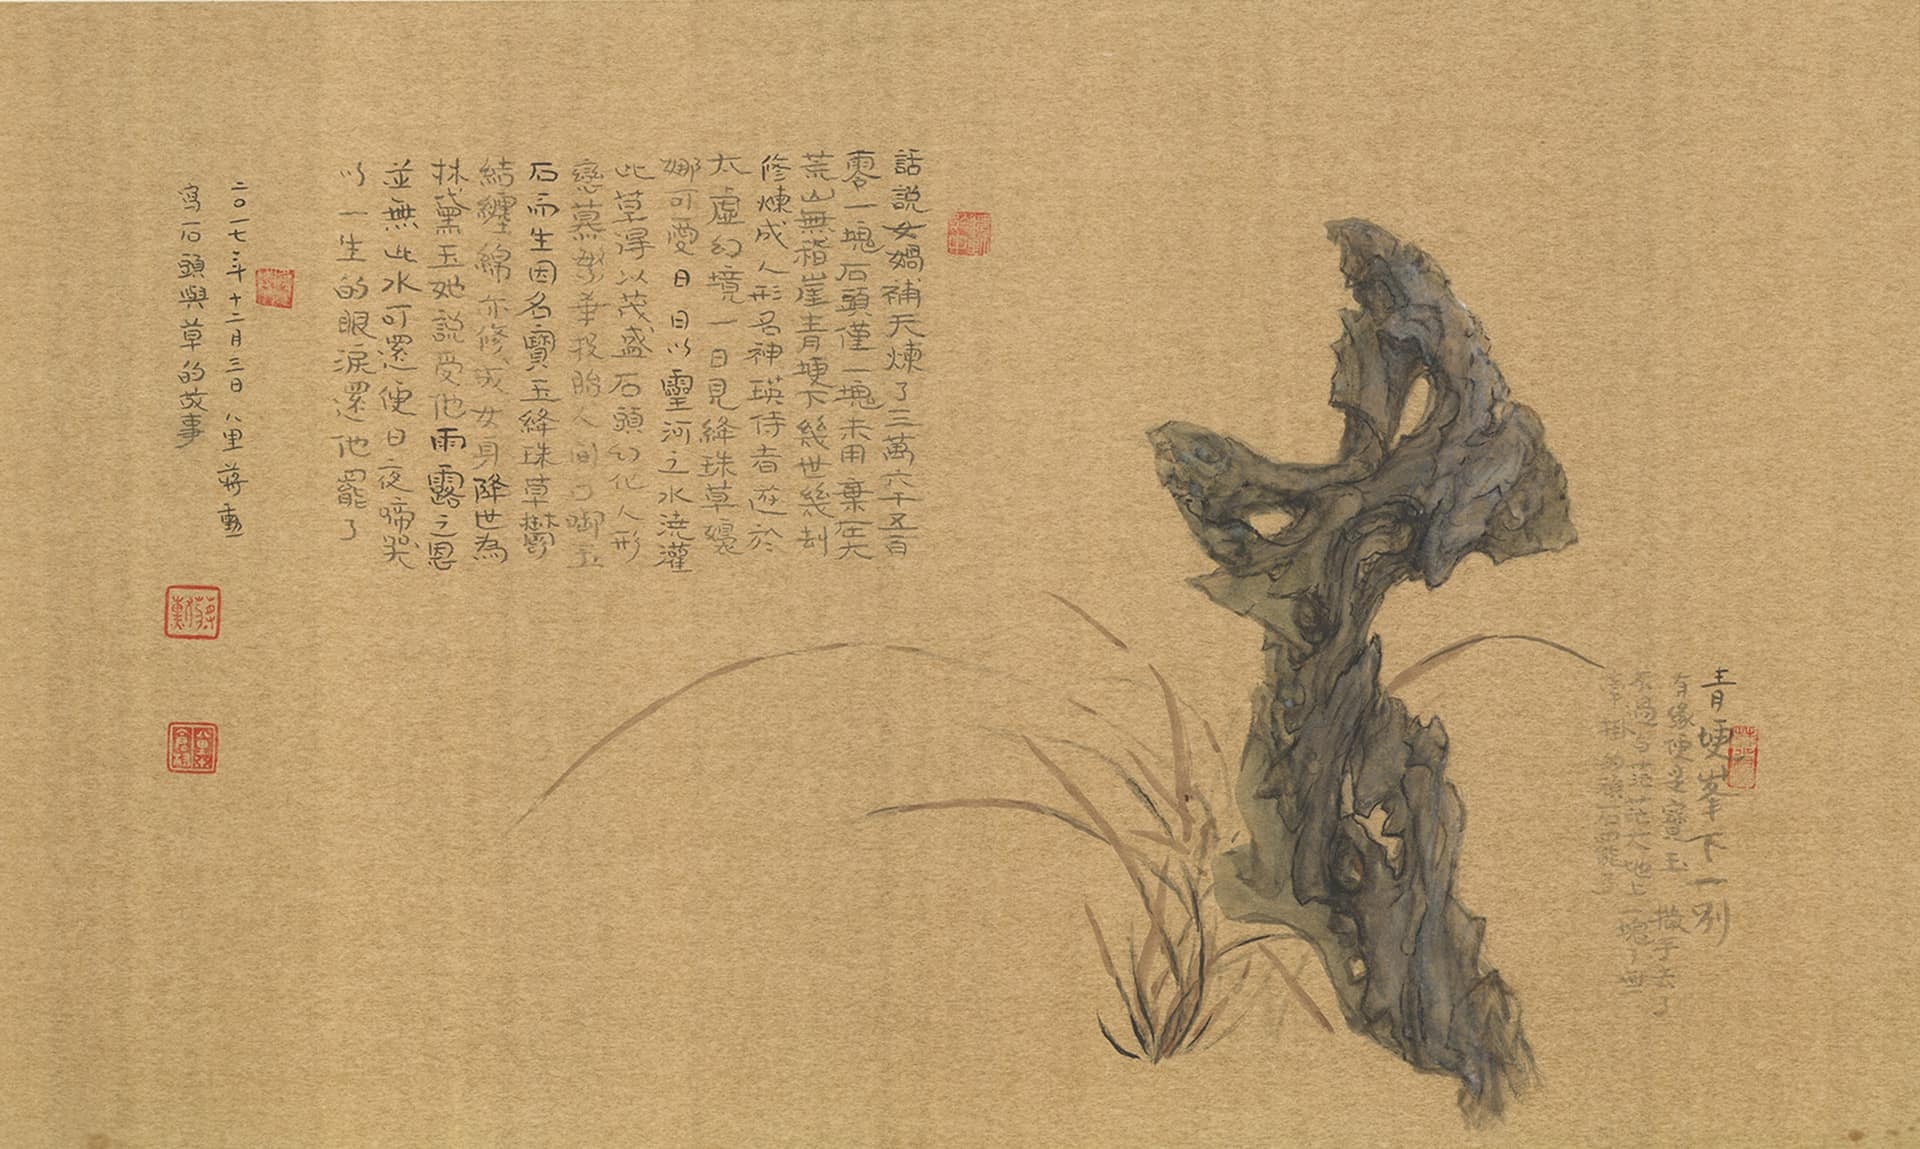 青埂峯下一別
有緣便是寶玉 撒手去了
不過與茫茫大地上一塊了無
牽掛的頑石罷了
話説女媧補天煉了三萬六千五百
零一塊石頭僅一塊未用棄在大
荒山無稽崖青埂下幾世幾刦
修煉成人形名神瑛侍者遊於
太虛幻境一日見絳珠草嬝
娜可愛日日以靈河之水澆灌
此草得以茂盛石頭幻化人形
戀慕繁華投胎人間口啣玉
石而生因名寶玉絳珠草鬱
結纏綿亦修成女身降世為
林黛玉她説受他雨露之恩
並無此水可還便日夜啼哭
以一生的眼淚還他罷了
二〇一七年十二月三日八里蔣勳
寫石頭與草的故事